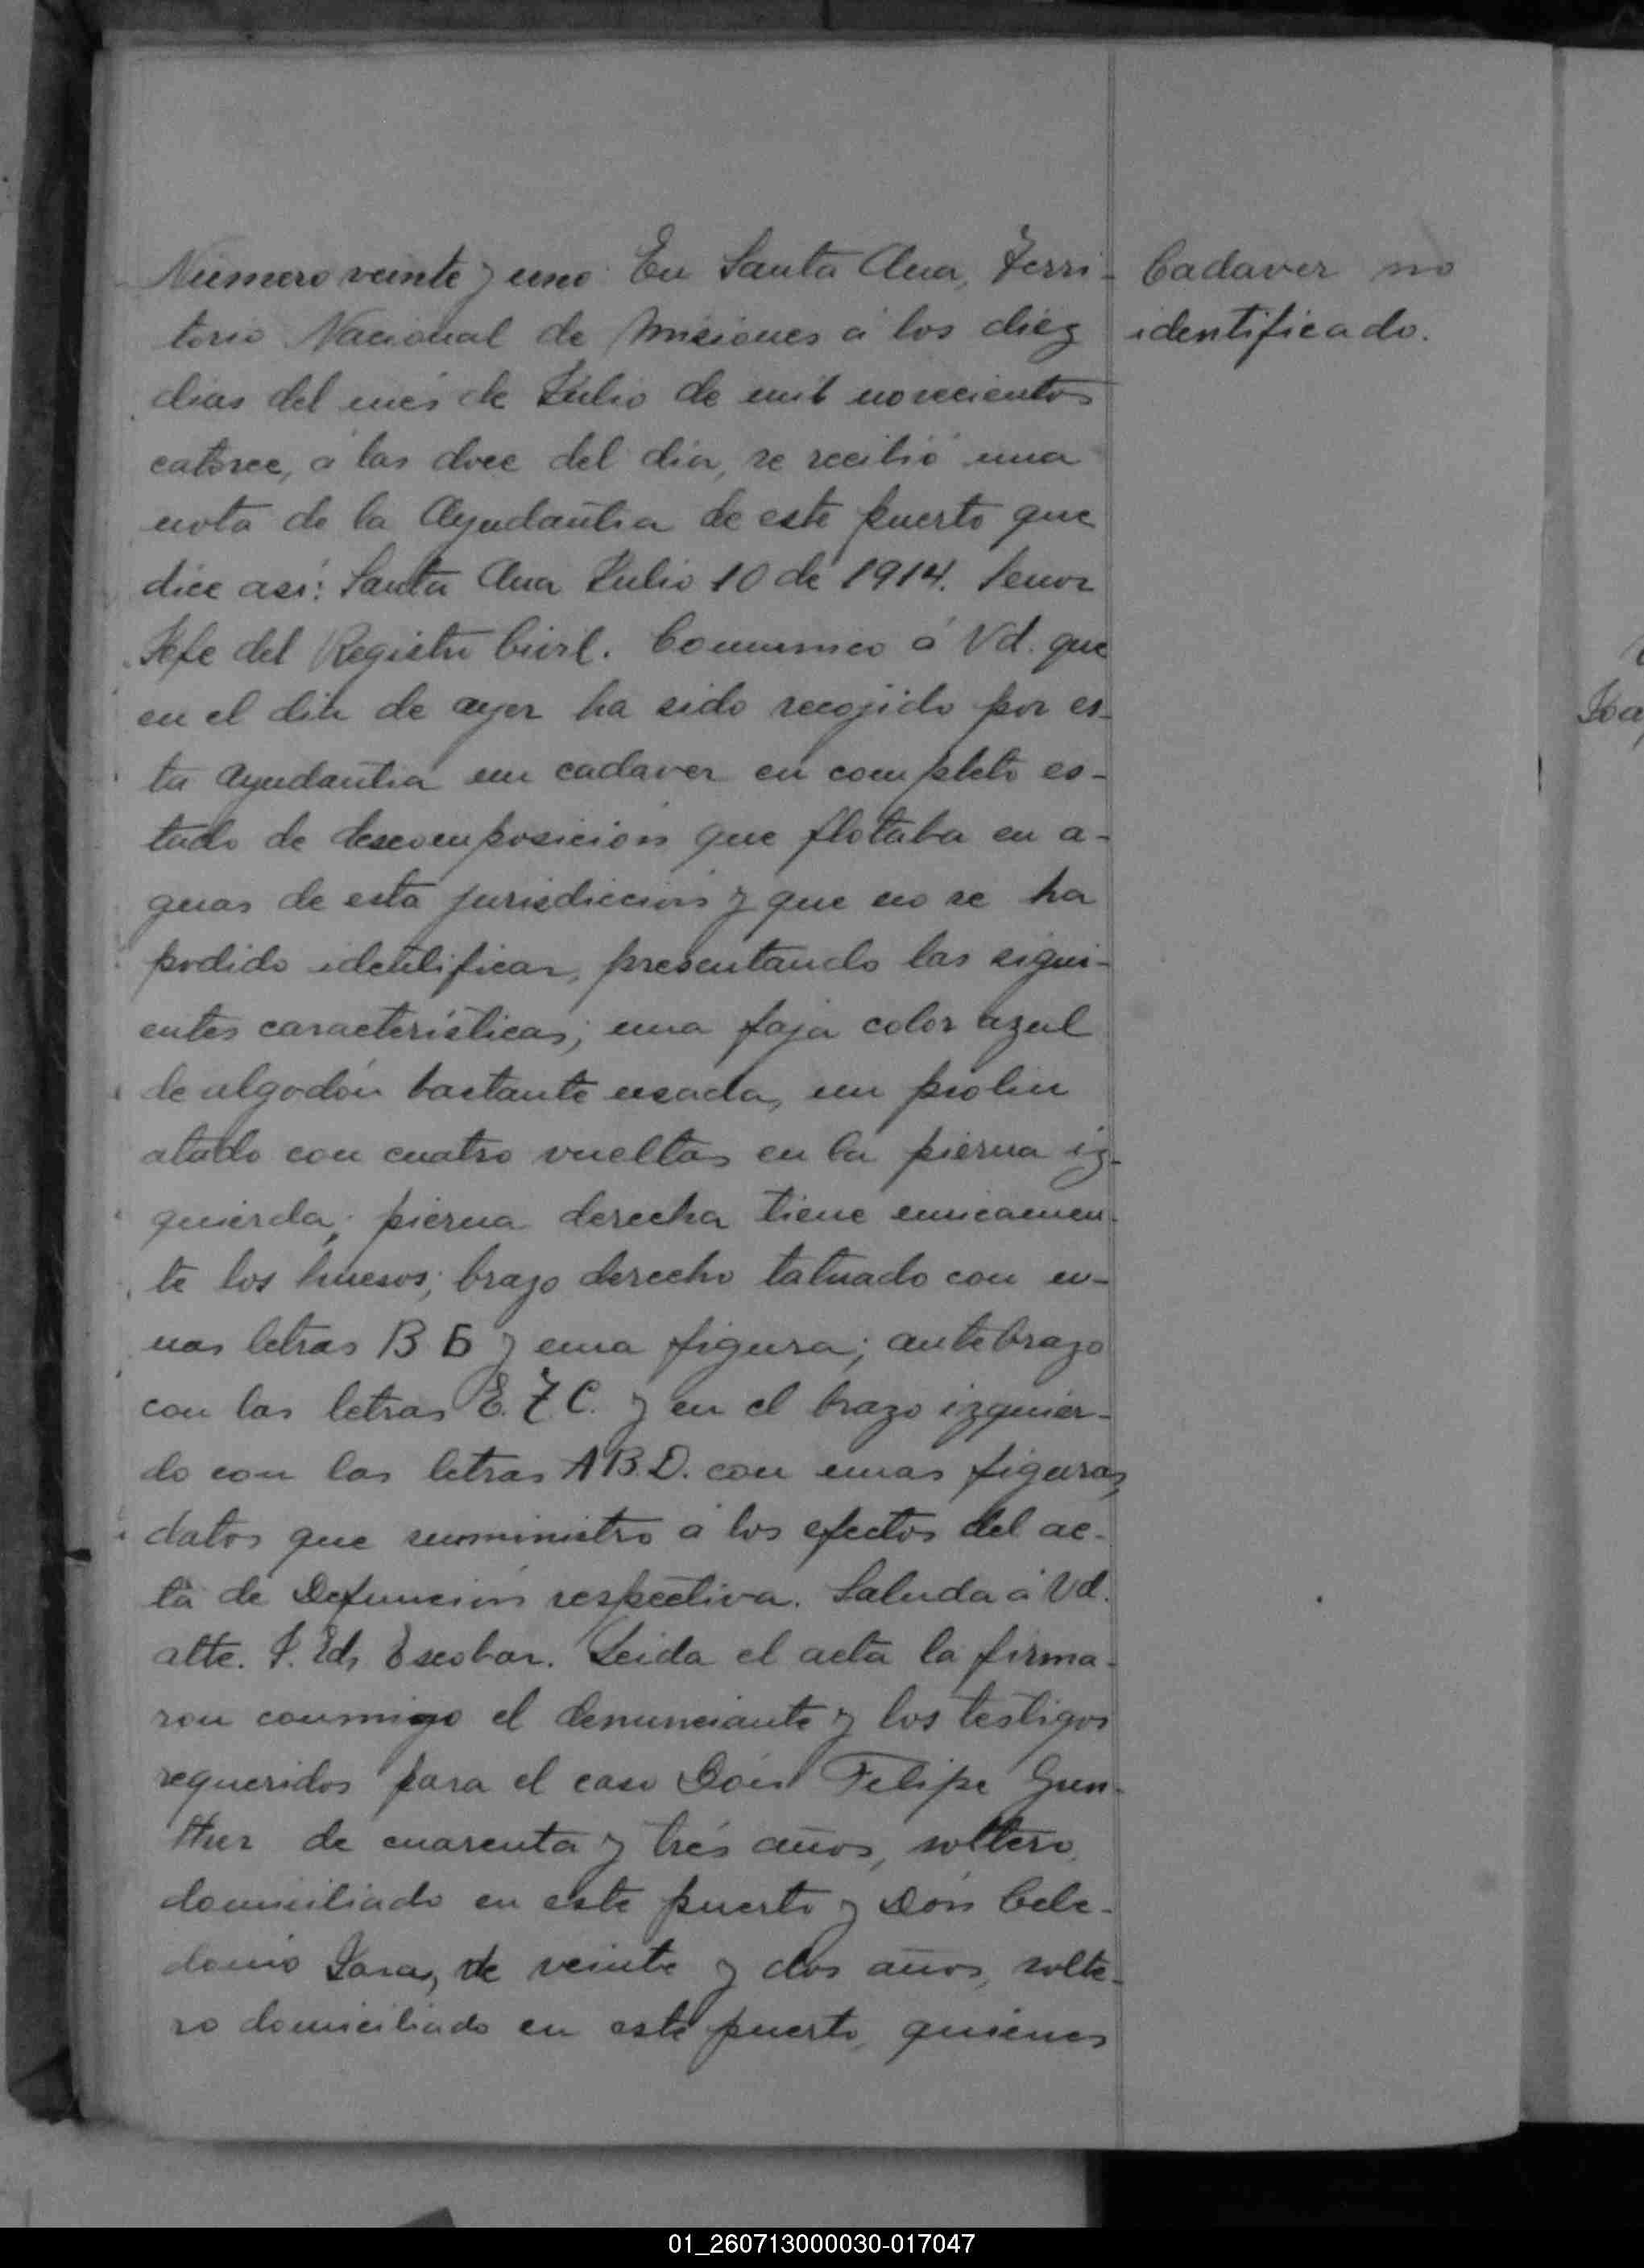 Número veinte y uno. En Santa Ana, Terri-
torio Nacional de Misiones á los diez
dias del mes de Julio de mil novecientos
catorce, á las doce del dia, se recibió una
nota de la Ayudantia de este puerto que
dice asi: Santa Ana Julio 10 de 1914. Señor
Jefe del Registro Civil. Comunico á Vd. que
en el dia de ayer ha sido recojido por es-
ta Ayudantia un cadaver en completo es-
tado de descomposición que flotaba en a-
guas de esta jurisdicción y que no se ha
podido identificar, presentando las sigui-
entes características; una faja color azul
de algodón bastante usada, un piolin
atado con cuatro vueltas en la pierna iz-
quierda; pierna derecha tiene unicamen-
te los huesos; brazo derecho tatuado con u-
nas letras B B y una figura; antebrazo
con las letras E. F. C. y en el brazo izquier-
do con las letras A B. D. con unas figuras,
datos que suministro á los efectos del ac-
ta de Defunción respectiva. Saluda á Vd.
atte. J. Ed. Escobar. Leida el acta la firma-
ron conmigo el denunciante y los testigos
requeridos para el caso Don Felipe Gun-
ther de cuarenta y trés años, soltero,
domiciliado en este puerto y Don Cele-
donio Jara, de veinte y dos años, solte-
ro domiciliado en este puerto, quienes
Cadaver no
identificado.
01_260713000030-017047